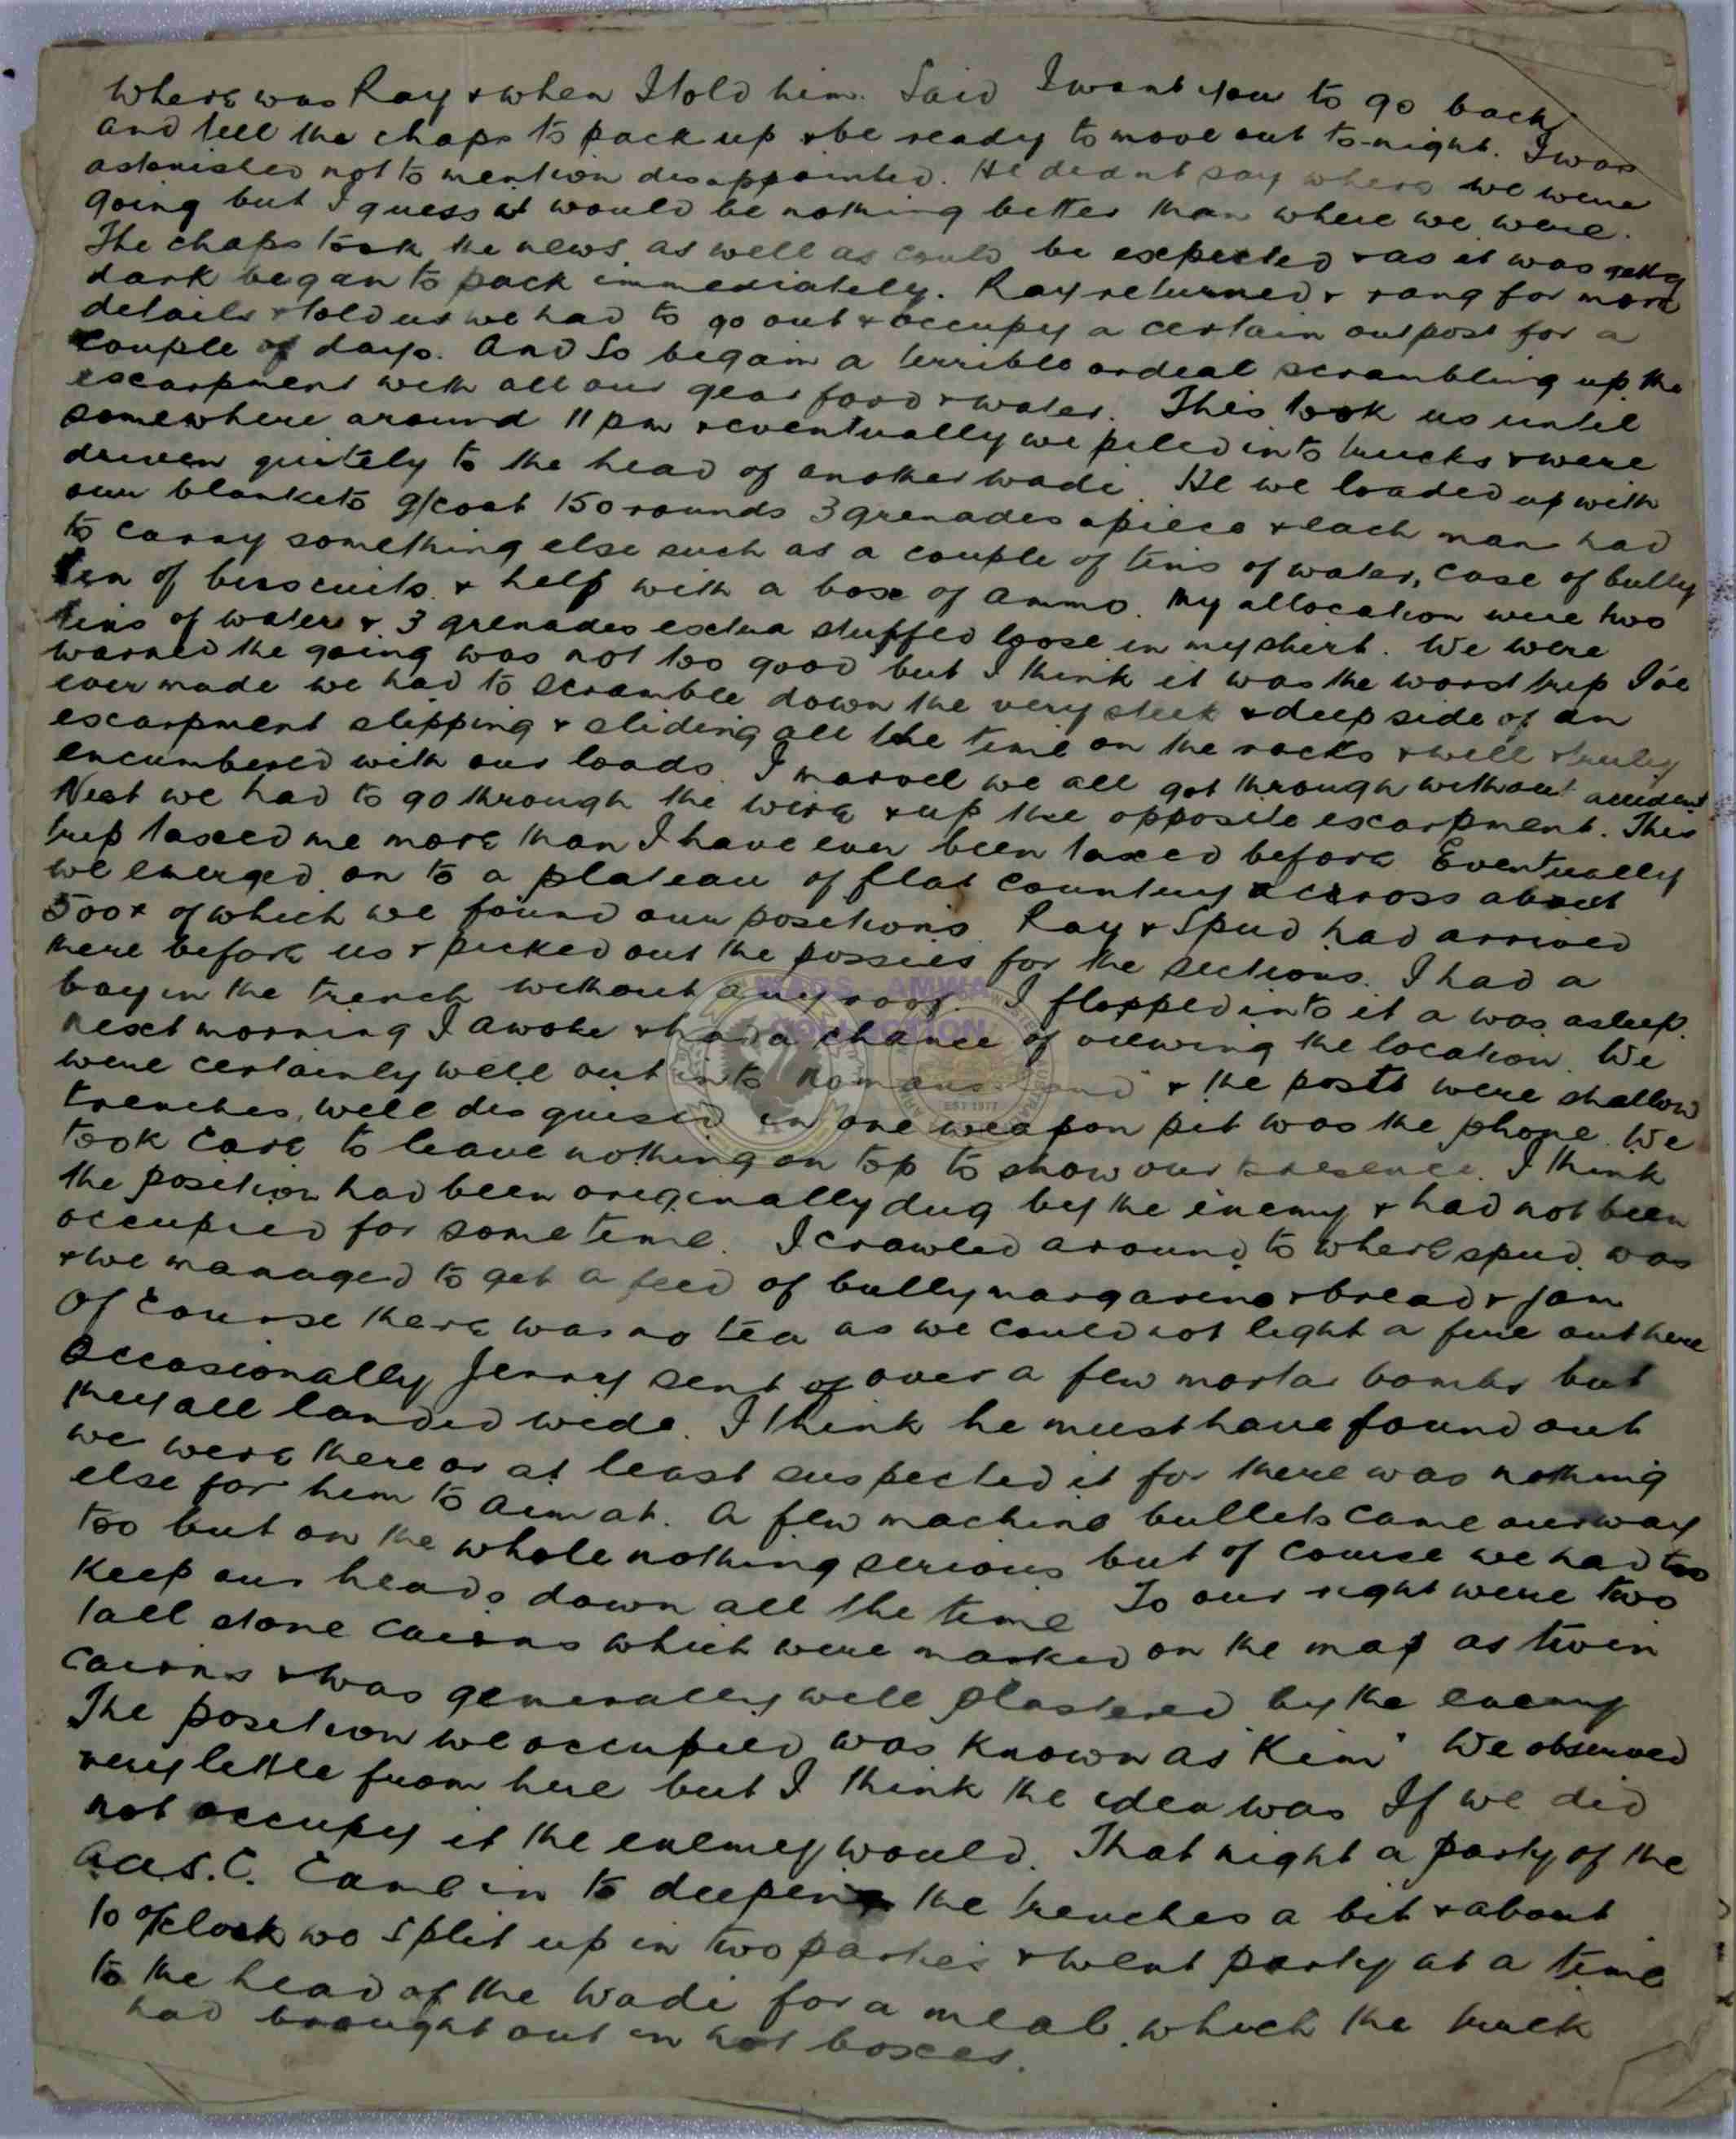 where was Ray & when I told him. Said I want you to go back
and tell the chaps to pack up & be ready to move out to-night. I was
astonished not to mention disappointed. He didnt say where we were
going but I guess it would be nothing better than where we were.
The chaps took the news as well as could be expected & as it was getting
dark began to pack immediately. Ray returned & rang for more
details & told us we had to go out & occupy a certain outpost for a
couple of days. And so began a terrible ordeal scrambling up the
escarpment with all our gear food & water. This took us until
somewhere around 11 pm & eventually we piled into trucks & were
driven quitely to the head of another wadi. He we loaded up with
our blankets g/coat 150 rounds 3 grenades apiece & each man had
to carry something else such as a couple of tins of water, case of bully
tin of biscuits & help with a box of ammo. My allocation were two
tins of water & 3 grenades extra stuffed loose in my shirt. We were
warned the going was not too good but I think it was the worst trip I've
ever made we had to scramble down the very steek & deep side of an
escarpment slipping & sliding all the time on the rocks & well & truly
encumbered with our loads. I marvel we all got through without accident
Next we had to go through the wire & up the opposite escarpment. This
trip taxed me more than I have ever been taxed before Eventually
we emerged on to a plateau of flat country across about
500x of which we found our positions. Ray & Spud had arrived
there before us & picked out the possies for the sections. I had a
bay in the trench without any roof. I flopped into it a was asleep.
Next morning I awoke & had a chance of viewing the location. We
were certainly well out into nomans land & the posts were shallow
trenches, well disguised in one weapon pit was the phone. We
took care to leave nothing on top to show our presence. I think
the position had been originally dug by the enemy & had not been
occupied for some time. I crawled around to where spud was
& we managed to get a feed of bully margarine & bread & jam
Of course there was no tea as we could not light a fire out here
Occasionally Jerry sent of over a few mortar bombs but
they all landed wide. I think he must have found out
we were there or at least suspected it for there was nothing
else for him to aim at. A few machine bullets came our way
too but on the whole nothing serious but of course we had to
keep our heads down all the time To our right were two
tall stone cairns which were marked on the map as twin
cairns & was generally well plastered by the enemy
The position we occupied was known as "Kim" We observed
very little from here but I think the idea was If we did
not occupy it the enemy would. That night a party of the
A.A.S.C. came in to deepen the trenches a bit & about
10 o'clock we split up in two parties & went party at a time
to the head of the wadi for a meal which the truck
had brought out in hot boxes.
WAGS - AMWA
COLLECTION
EST 1977